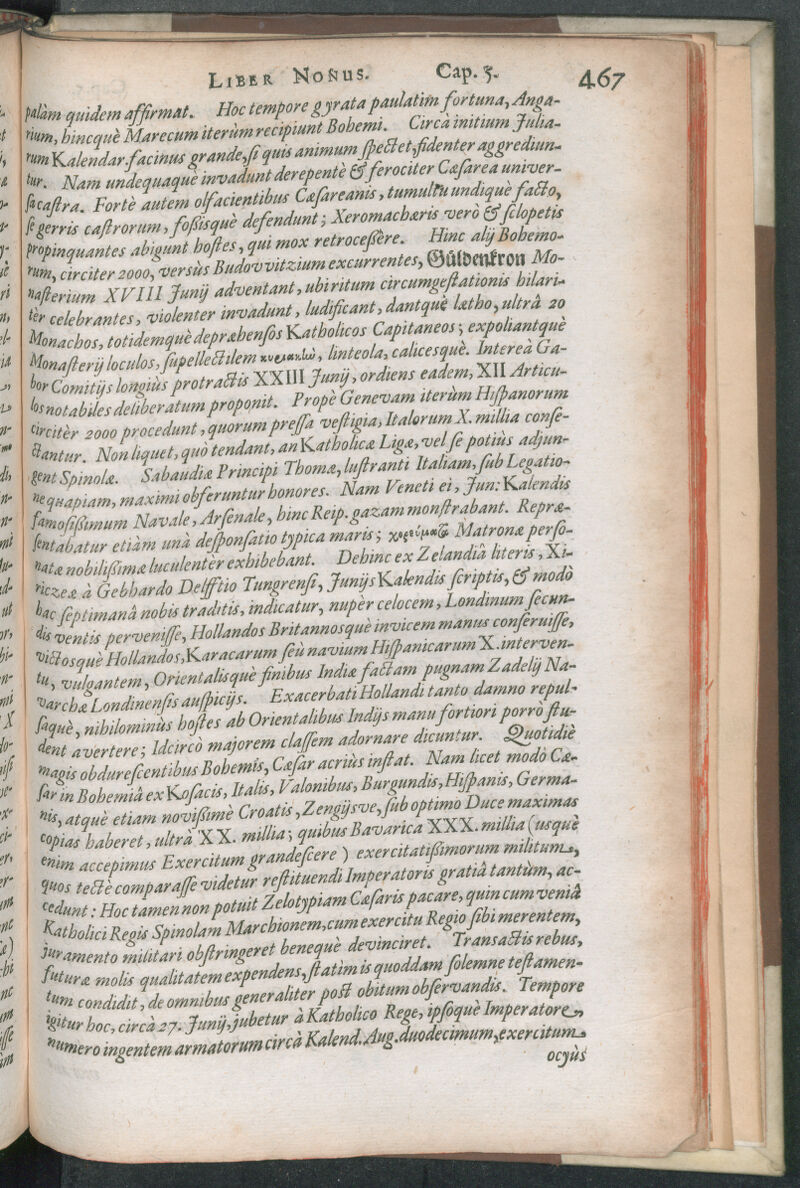 LIBER NONUS. Cap. 5. 467
palàm quidem affirmat. Hoc tempore gyrata paulatim fortuna, Anga-
rium, hincquè Marecum iterùm recipiunt Bohemi. Circà initium Julia-
rum Kalendar. facinus grande, si quis animum spectet, fidenter aggrediun-
tur. Nam undequaquè invadunt derepentè & ferociter Cæsarea univer-
sa castra. Fortè autem olfacientibus Cæsareanis, tumultu undiquè facto,
se gerris castrorum, fossisquè defendunt; Xeromachæris verò & sclopetis
propinquantes abigunt hostes, qui mox retrocessêre. Hinc alij Bohemo-
rum, circiter 2000, versùs Budovvitzium excurrentes, Güldenkron Mo-
nasterium XVIII Junij adventant, ubi ritum circumgestationis hilari-
tèr celebrantes, violenter invadunt, ludificant, dantquè lætho, ultrâ 20
Monachos, totidemquè depræhensos Katholicos Capitaneos; expoliantquè
Monasterij loculos, supellectilem κυριακὼ, linteola, calicesquè. Intereà Ga-
bor Comitijs longiùs protractis XXIII Junij, ordiens eadem, XII Articu-
los notabiles deliberatum proponit. Propè Genevam iterùm Hispanorum
circitèr 2000 procedunt, quorum pressa vestigia, Italorum X. millia conse-
ctantur. Non liquet, quò tendant, an Katholicæ Ligæ, vel se potiùs adjun-
gent Spinolæ. Sabaudiæ Principi Thomæ, lustranti Italiam, sub Legatio-
ne quapiam, maximi obferuntur honores. Nam Veneti ei, Jun: Kalendis
famosissimum Navale, Arsenale, hinc Reip. gazam monstrabant. Repræ-
sentabatur etiàm unà desponsatio typica maris; χορεύματα Matronæ perso-
natæ nobilissimæ luculentèr exhibebant. Dehinc ex Zelandiâ literis, Xi-
riczeæ à Gebhardo Delfftio Tungrensi, Junijs Kalendis scriptis, & modò
hac septimanâ nobis traditis, indicatur, nupèr celocem, Londinum secun-
dis ventis pervenisse, Hollandos Britannosquè invicem manus conseruisse,
victosquè Hollandos, Karacarum seù navium Hispanicarum X. interven-
tu, vulgantem, Orientalisquè finibus Indiæ factam pugnam Zadelij Na-
varchæ Londinensis auspicijs. Exacerbati Hollandi tanto damno repul-
saquè, nihilominùs hostes ab Orientalibus Indijs manu fortiori porrò stu-
dent avertere; Idcircò majorem classem adornare dicuntur. Quotidiè
magis obdurescentibus Bohemis, Cæsar acriùs instat. Nam licet modò Cæ-
sar in Bohemiâ ex Kosacis, Italis, Valonibus, Burgundis, Hispanis, Germa-
nis, atquè etiam novissimè Croatis, Zengijsve, sub optimo Duce maximas
copias haberet, ultrà XX. millia; quibus Bavarica XXX. millia (usquè
enim accepimus Exercitum grandescere) exercitatissimorum militum,
quos tectè comparasse videtur restituendi Imperatoris gratiâ tantùm, ac-
cedunt: Hoc tamen non potuit Zelotypiam Cæsaris pacare, quin cum veniâ
Katholici Regis Spinolam Marchionem, cum exercitu Regio sibi merentem,
juramento militari obstringeret benequè devinciret. Transactis rebus,
futuræ molis qualitatem expendens, statìm is quoddam solemne testamen-
tum condidit, de omnibus generaliter post obitum observandis. Tempore
igitur hoc, circà 27. Junij, jubetur à Katholico Rege, ipsoquè Imperatore,
numero ingentem armatorum circà Kalend. Aug. duodecimum, exercitum
ocyùs